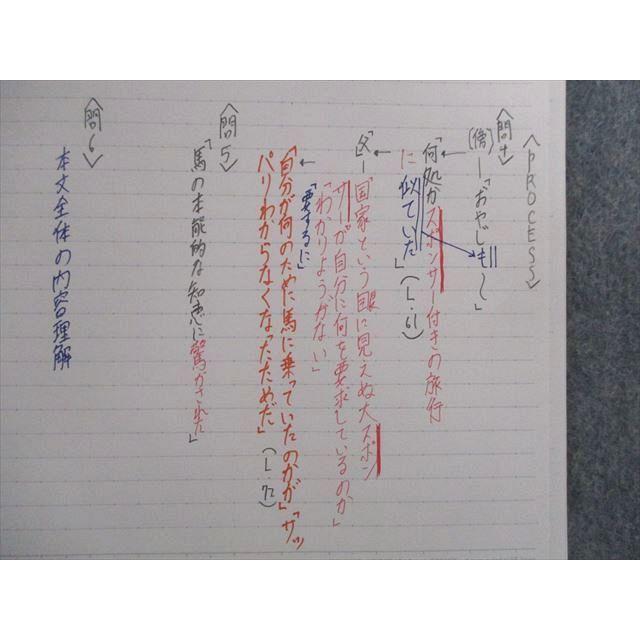 〈PROCESS〉
〈問4〉
(傍)ー「おやじも〜」
「何処かスポンサー付きの旅行
に似ていた」(L.61)
「父ー「国家という眼に見えぬ大スポン
サーが自分に何を要求しているのか」
「わかりようがない」
「要するに」
「自分が何のために馬に乗っていたのかが」「サッ
パリわからなくなったためだ」(L.72)
〈問5〉
「馬の本能的な知恵に驚かされた」
〈問6〉
本文全体の内容理解